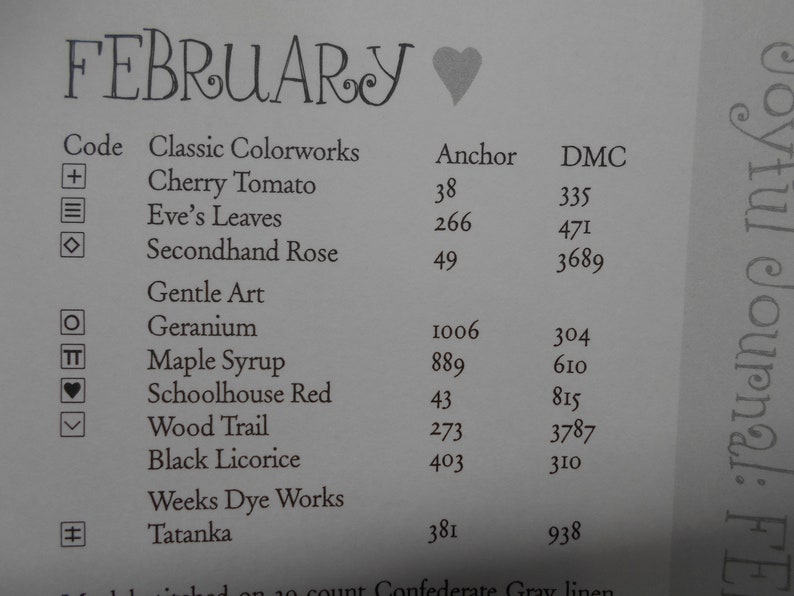 FEBRUARY
Code Classic Colorworks Anchor DMC
Cherry Tomato 38 335
Eve's Leaves 266 471
Secondhand Rose 49 3689
Gentle Art
Geranium 1006 304
Maple Syrup 889 610
Schoolhouse Red 43 815
Wood Trail 273 3787
Black Licorice 403 310
Weeks Dye Works
Tatanka 381 938
on 30 count Confederate Gray linen
Joyful Journal: FE